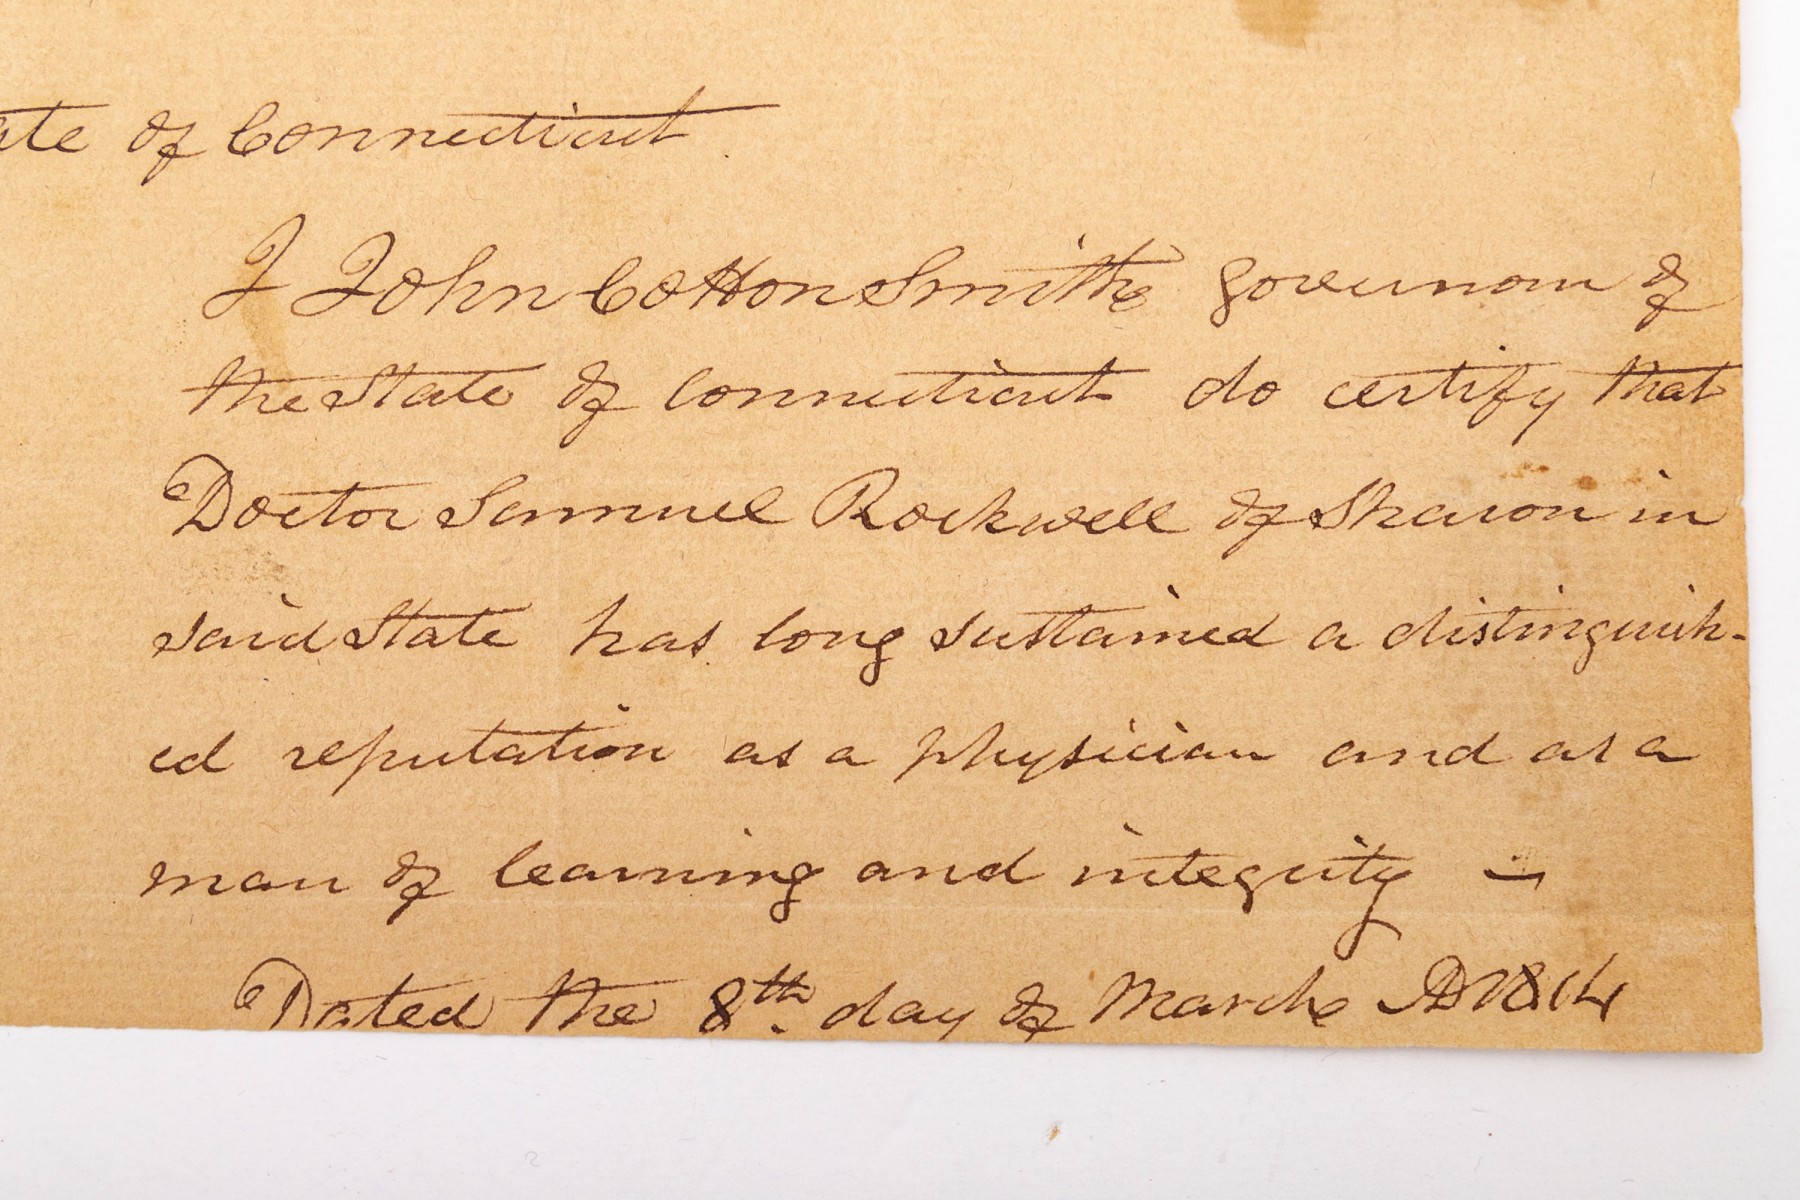 ate of Connecticut.
I John Cotton Smith governour of
the State of Connecticut do certify that
Doctor Samuel Rockwell of Sharon in
said State has long sustained a distinguish-
ed reputation as a physician and as a
man of learning and integrity —
Dated the 8th. day of March AD 1814